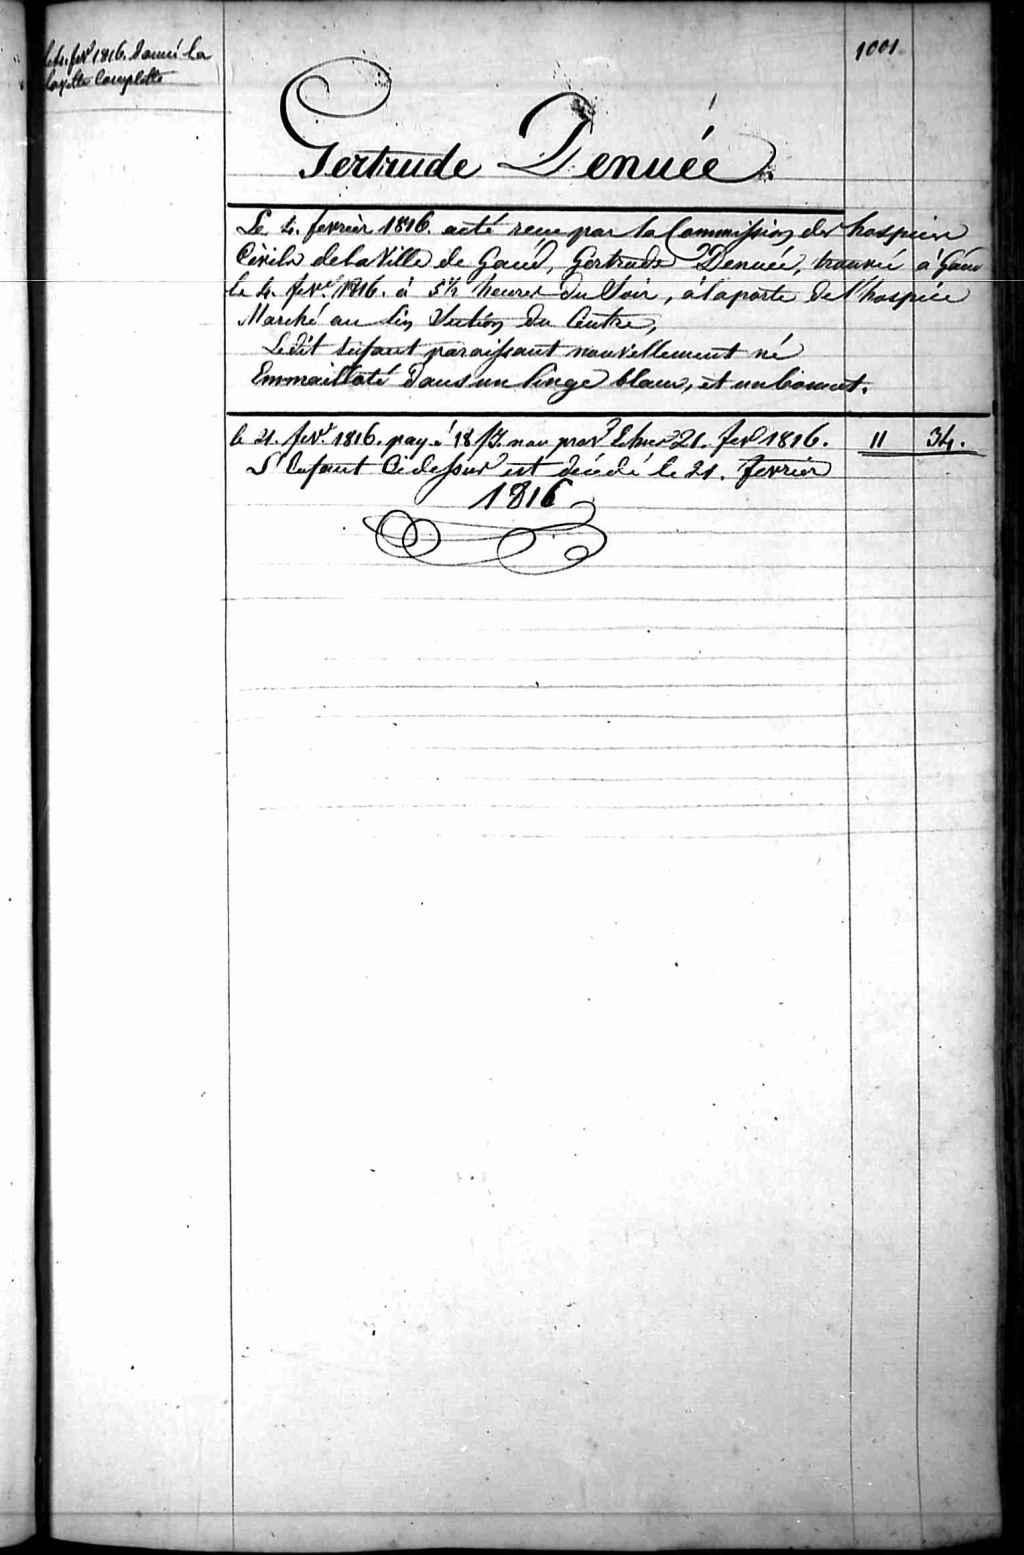 le 4. fevr 1816. donné la
layette complette
1001
Gertrude Denuée.
Le 4. fevrier 1816. a eté recu par la Commission des hospices
Civils de la Ville de Gand, Gertrude Denuée, trouvée à Gand
le 4. fevr. 1816. à 5½ heures du Soir, à la porte de l'hospice
Marché au lin Section du Centre,
Ledit Enfant paraissant nouvellement né
Emmailloté dans un linge blanc, et un bonnet.
le 21. fevr. 1816. payé 18 Js. nour 21. fevr 1816. 11 34.
L'Enfant Cidessus est décédé le 21. fevrier
1816